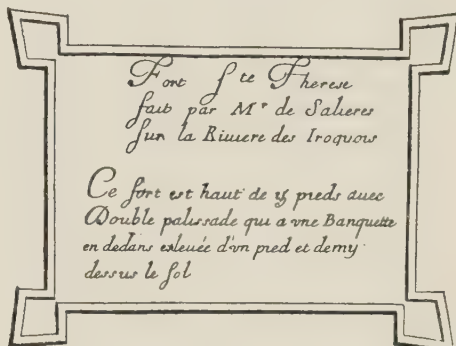 Fort Ste Therese
fait par Mr de Salieres
sur la Riuiere des Iroquois
Ce fort est haut de pieds auec
Double palissade qui a vne Banquette
en dedans esleuée d'vn pied et demy
dessus le sol